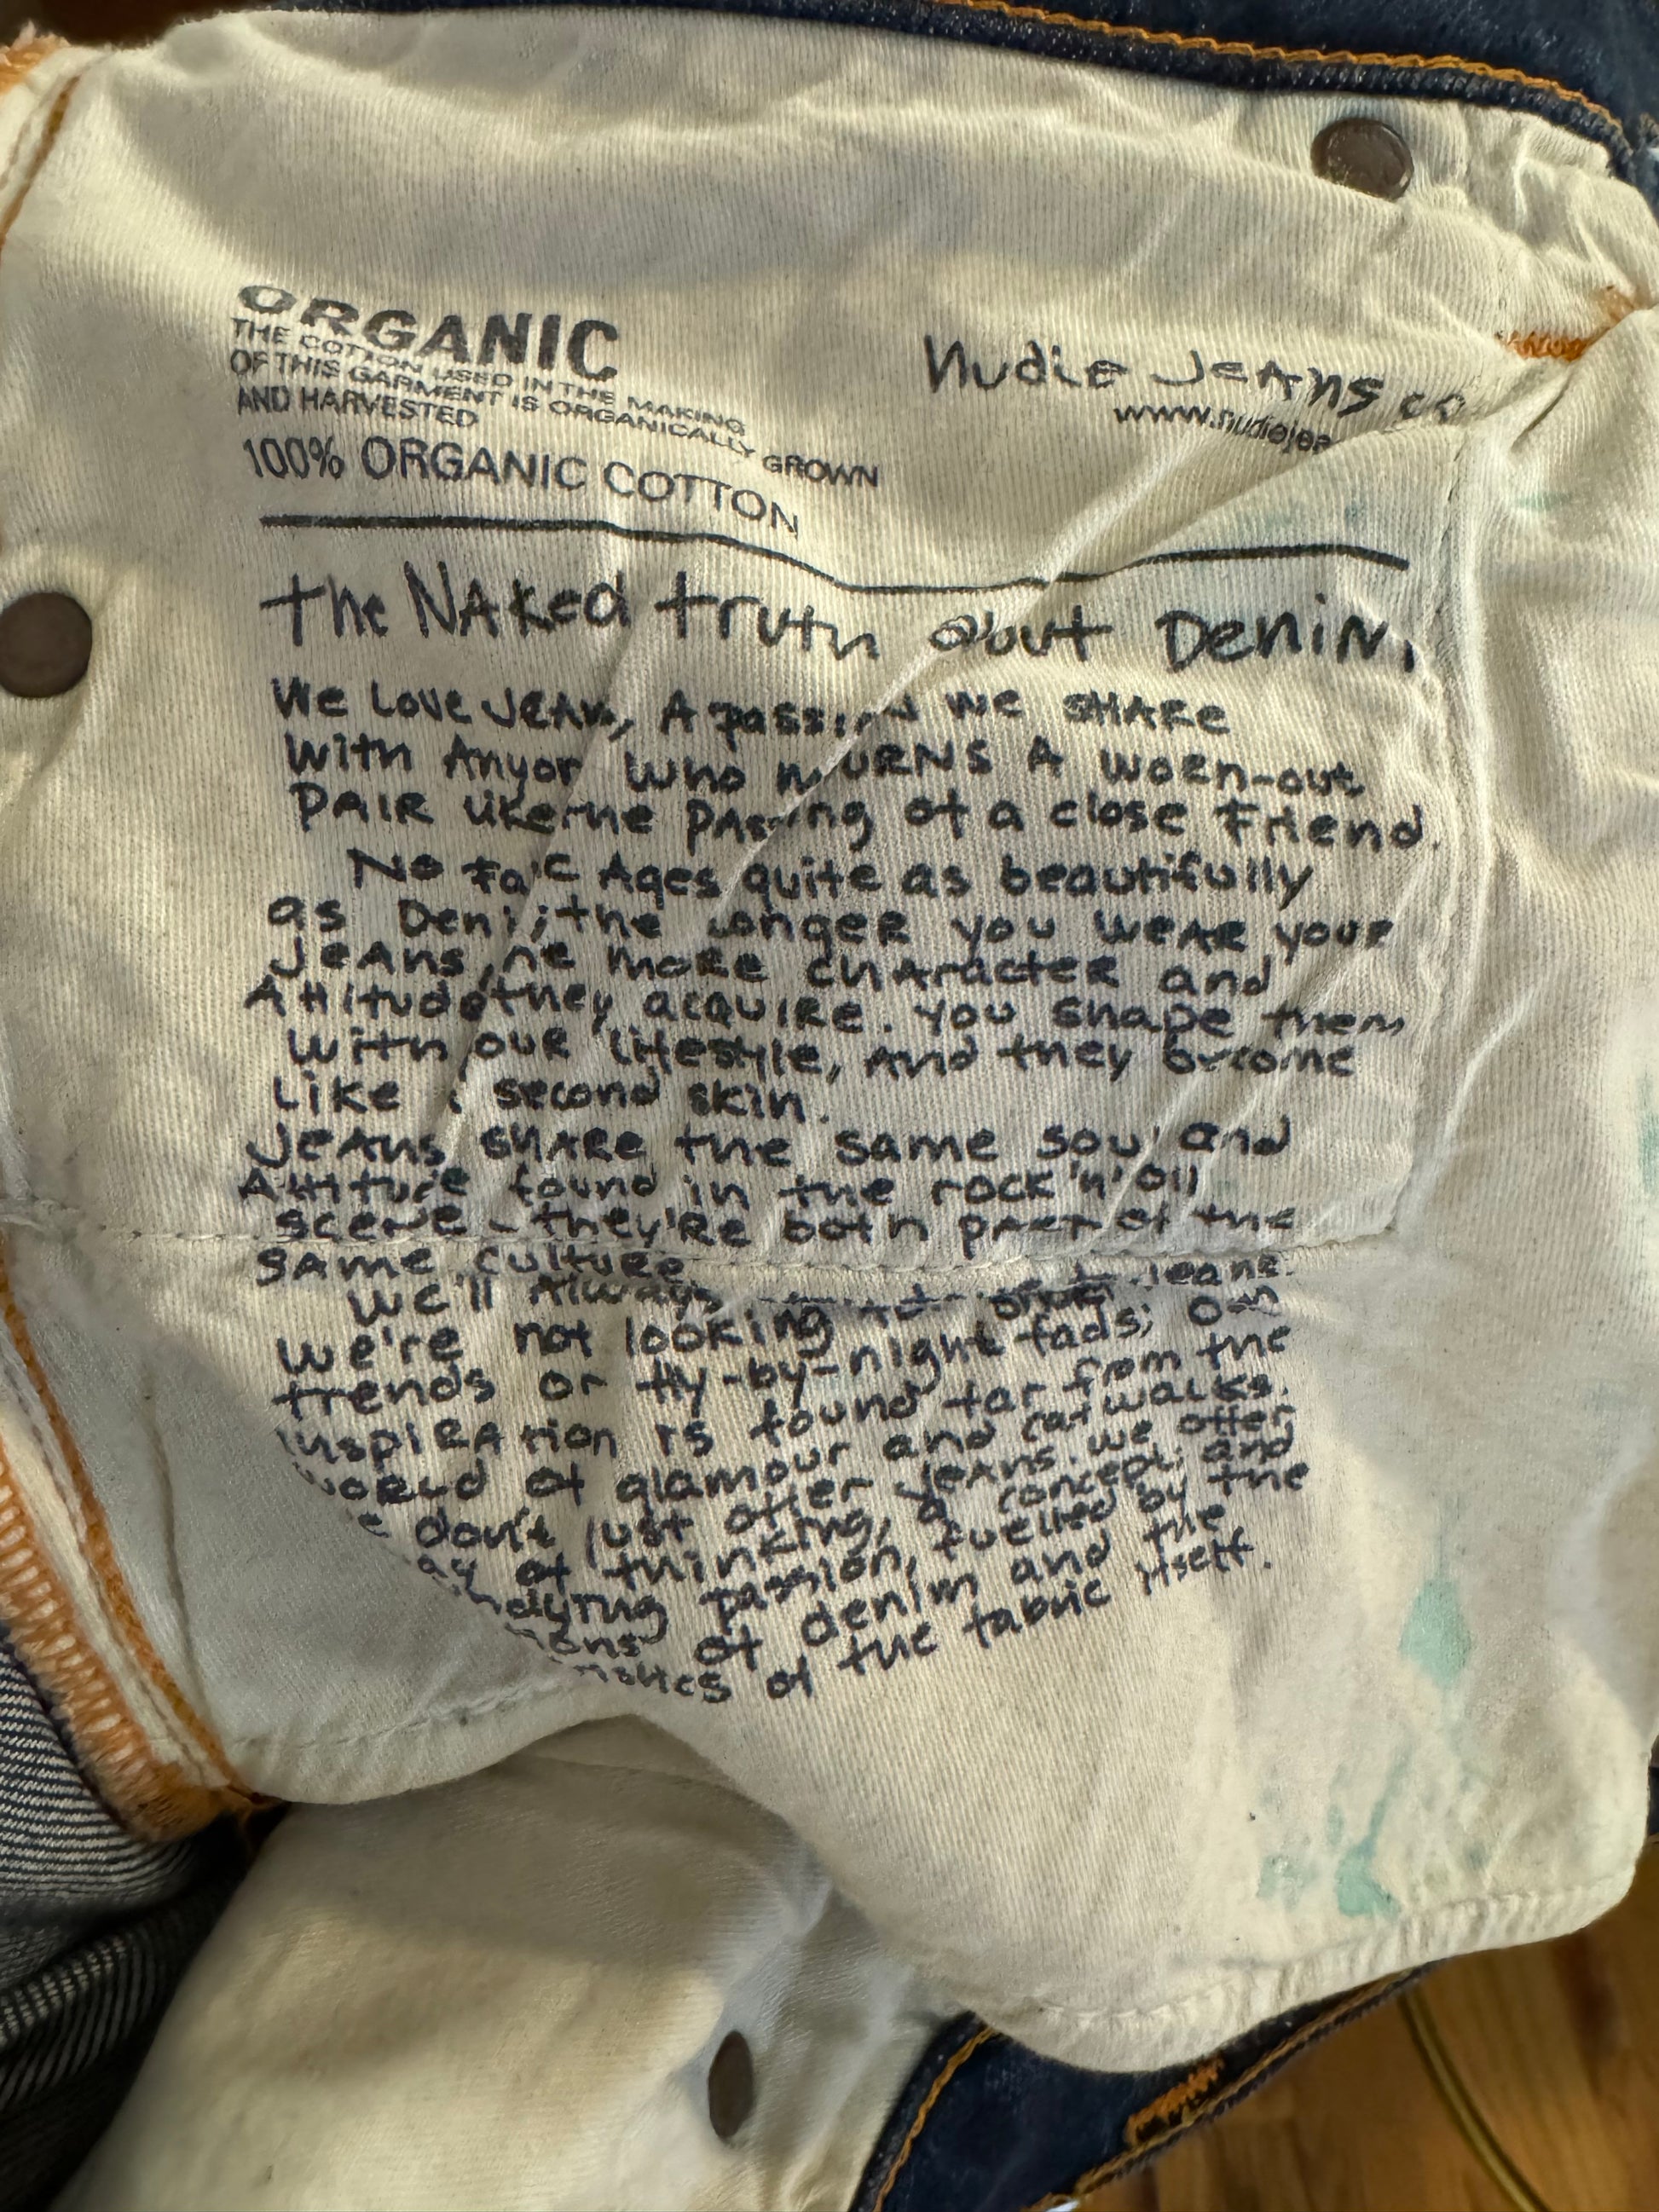 ORGANIC
THE COTTON USED IN THE MAKING
OF THIS GARMENT IS ORGANICALLY GROWN
AND HARVESTED
100% ORGANIC COTTON
Nudie Jeans co
www.nudiejea
the Naked truth about Denim.
We Love Jeans, A passion we SHARE
with Anyone who mourns A worn-out
PAIR like the passing of a close Friend.
No fabric Ages quite as beautifully
as Denim; the Longer you weAR your
JeAns, the more chAracter and
Attitude they acquire. You shape them
with your lifestyle, And they become
like a second skin.
JeAns shARe the same soul and
Attitude found in the rock'n'roll
scene - they're both part of the
same culture
We'll Always jeans.
We're not looking for our
trends or fly-by-night fads;
inspiRAtion is found far from the
world of glamour and catwalks.
don't just offer jeans. we offer
of thinking, a concept; and
passion, fuelled by the
of denim and the
of the fabric itself.